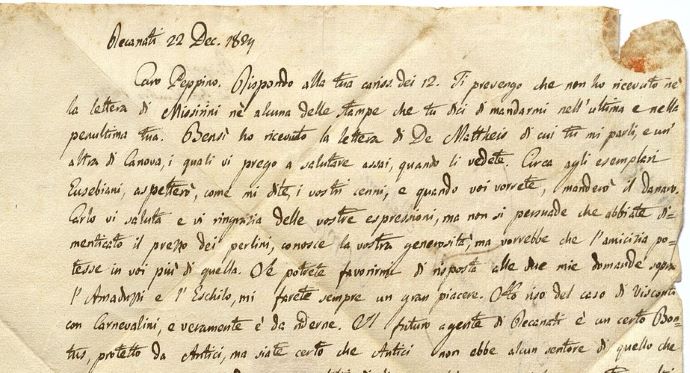 Recanati 22 Dec. 1824
Caro Peppino. Rispondo alla tua cariss. dei 12. Ti prevengo che non ho ricevuto nè
la lettera di Missirini nè alcuna delle stampe che tu dici di mandarmi nell'ultima e nella
penultima tua. Bensì ho ricevuto la lettera di De Mattheis di cui tu mi parli, e un'
altra di Canova, i quali vi prego a salutare assai, quando li vedete. Circa agli esemplari
Eusebiani, aspetterò, come mi dite, i vostri cenni, e quando voi vorrete, manderò il danaro.
Carlo vi saluta e vi ringrazia delle vostre espressioni, ma non si persuade che abbiate di-
menticato il prezzo dei perlini, conosce la vostra generosità, ma vorrebbe che l'amicizia po-
tesse in voi più di quella. Se potrete favorirmi di risposta alle due mie domande sopra
l'Amaduzzi e l'Eschilo, mi farete sempre un gran piacere. Ho riso del caso di Visconti
con Carnevalini, e veramente è da riderne. Il futuro agente di Recanati è un certo Bon-
tus, protetto da Antici, ma siate certo che Antici non ebbe alcun sentore di quello che